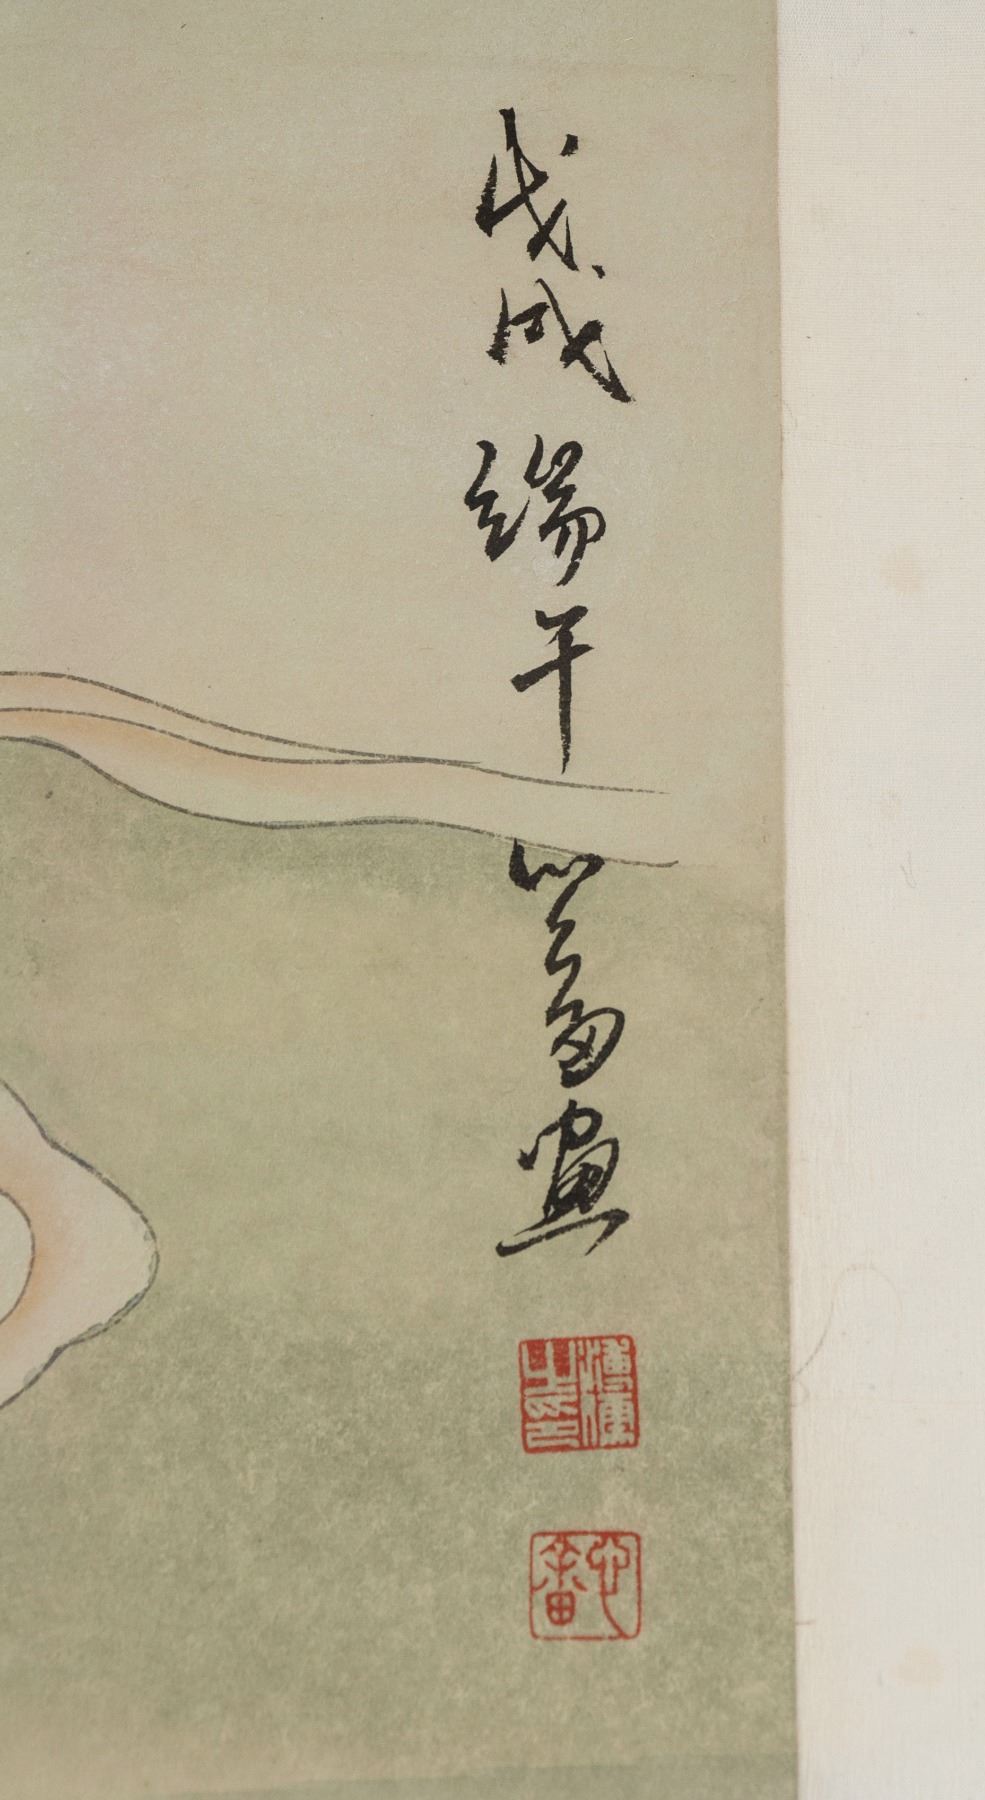 戊戌端午心畬畫
溥儒之印
心畬